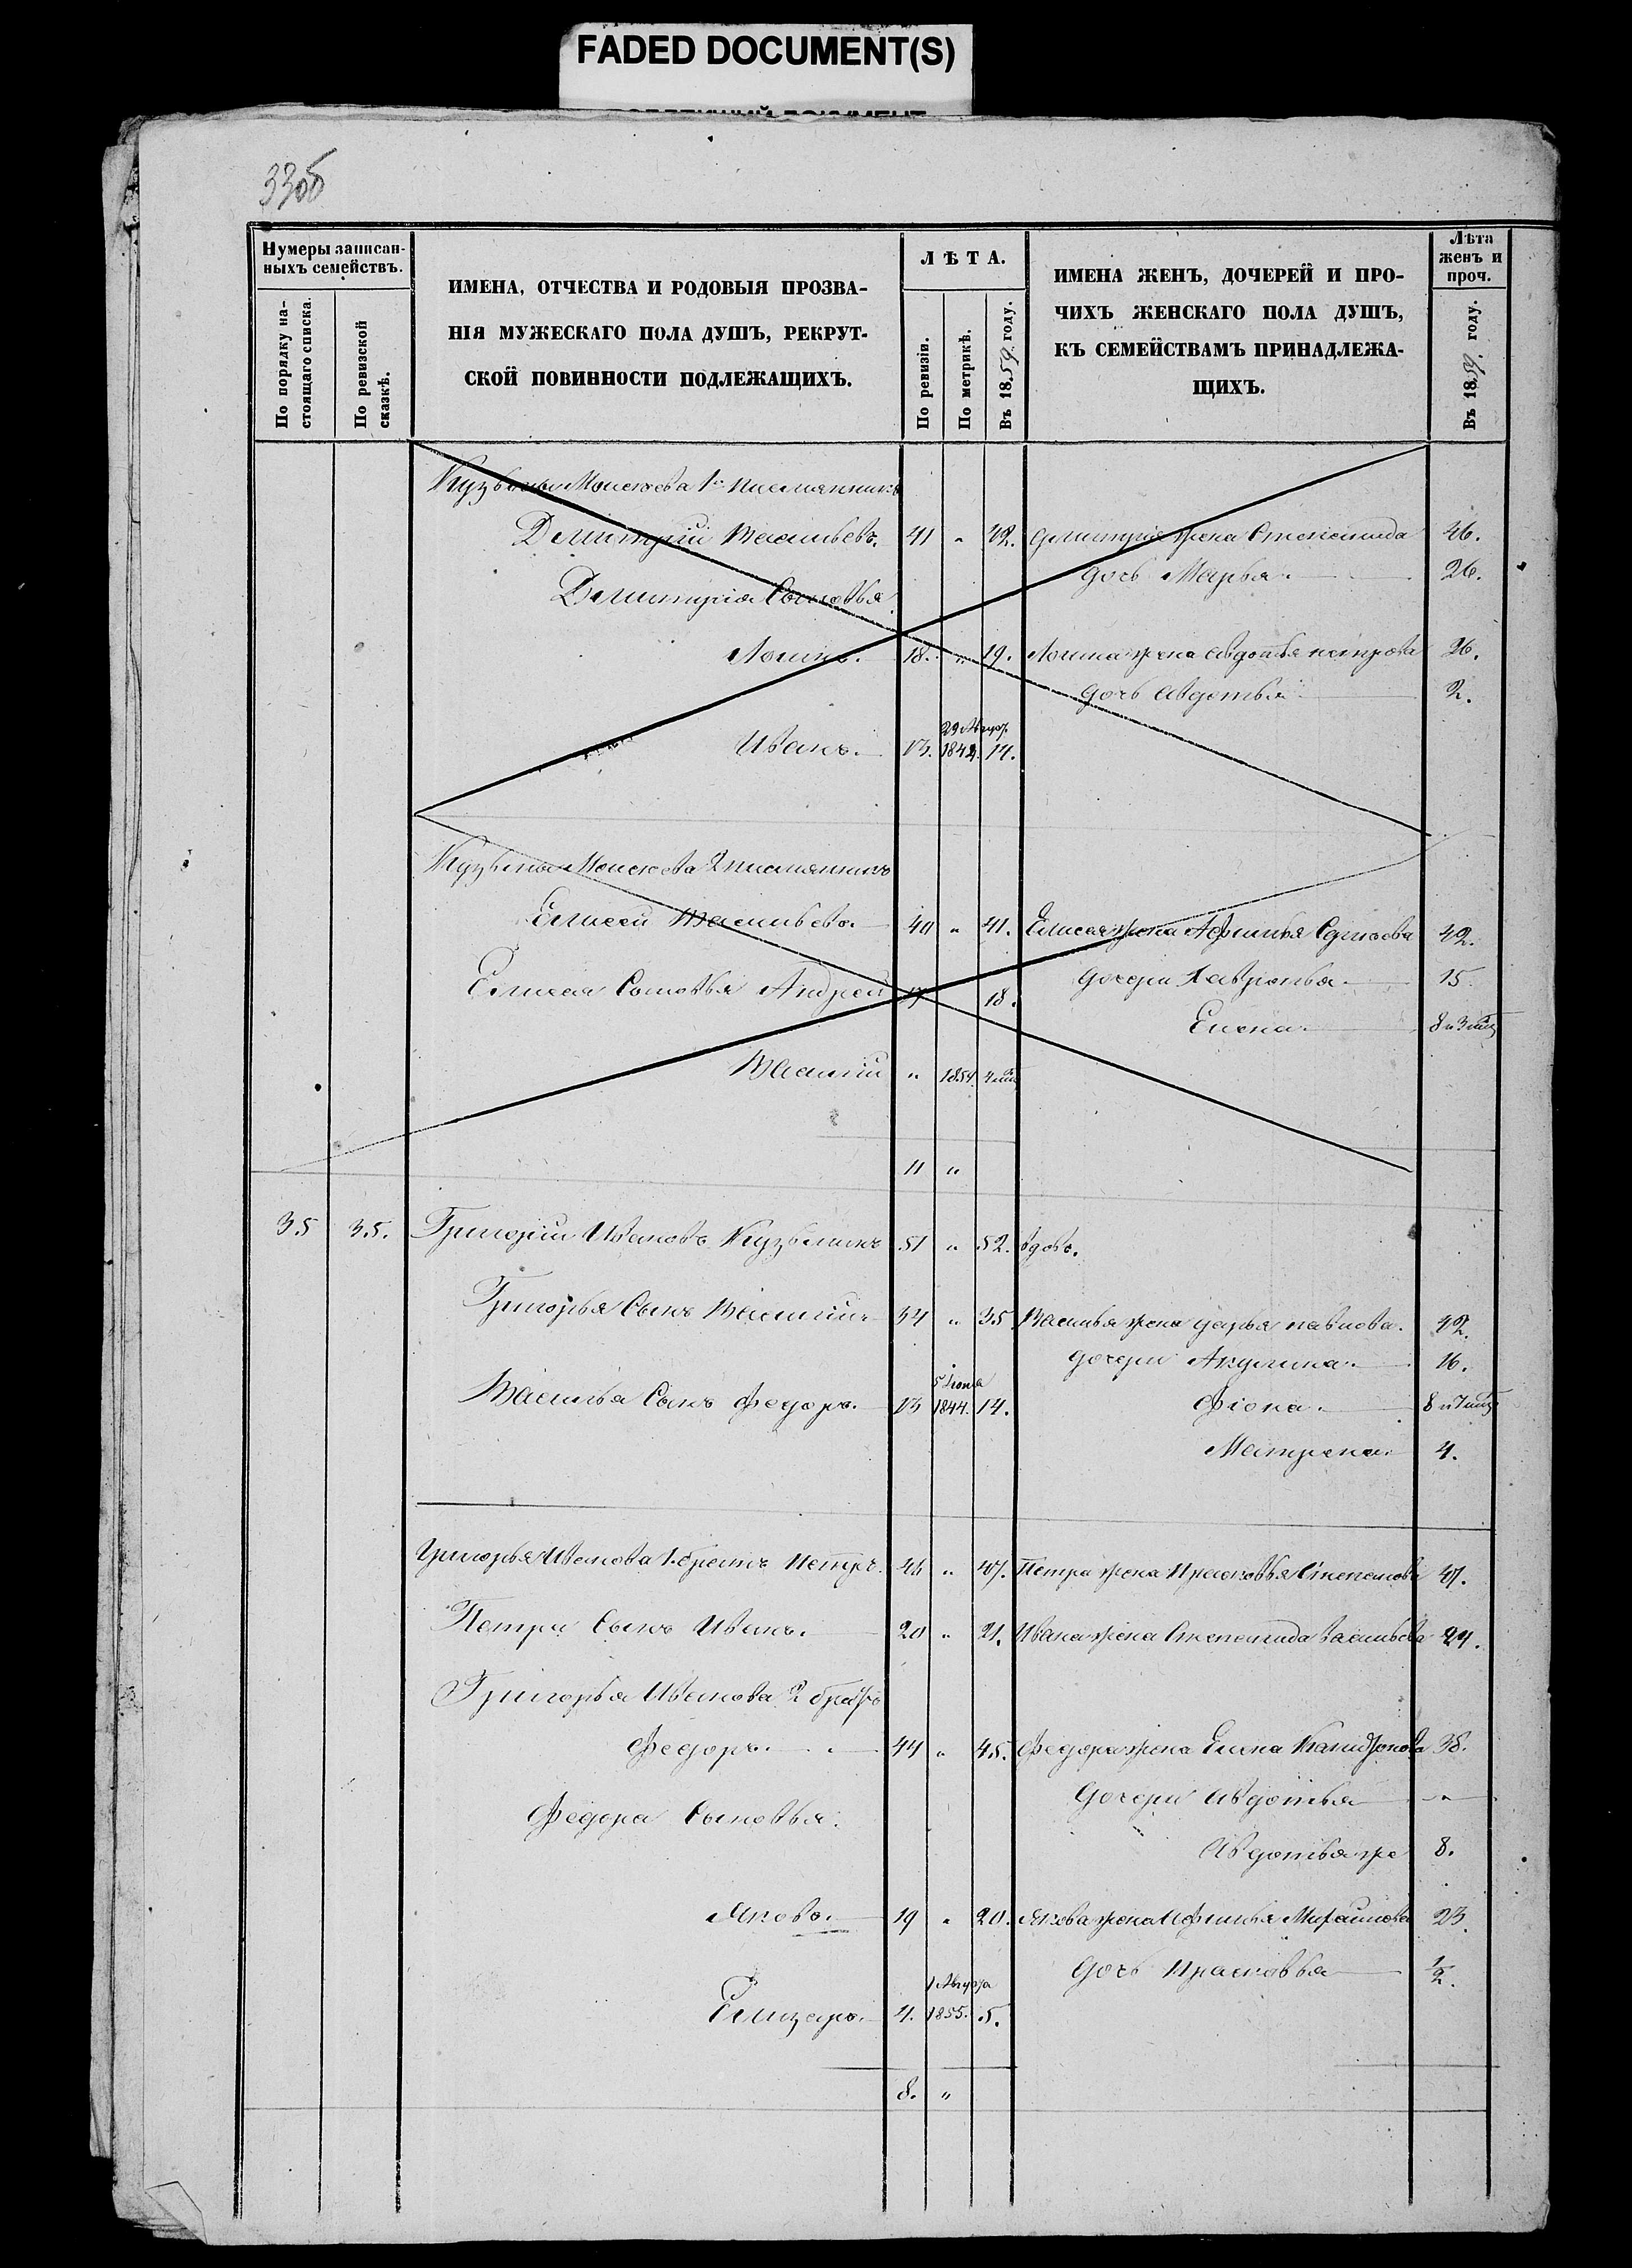 FADED DOCUMENT(S)
33об
Нумеры записан-
ныхъ семействъ.
По порядку на-
стоящаго списка.
По ревизской
сказкѣ.
ИМЕНА, ОТЧЕСТВА И РОДОВЫЯ ПРОЗВА-
НІЯ МУЖЕСКАГО ПОЛА ДУШЪ, РЕКРУТ-
СКОЙ ПОВИННОСТИ ПОДЛЕЖАЩИХЪ.
ЛѢТА.
По ревизіи.
По метрикѣ.
Въ 1859. году.
ИМЕНА ЖЕНЪ, ДОЧЕРЕЙ И ПРО-
ЧИХЪ ЖЕНСКАГО ПОЛА ДУШЪ,
КЪ СЕМЕЙСТВАМЪ ПРИНАДЛЕЖА-
ЩИХЪ.
Лѣта
женъ и
проч.
Въ 1859. году.
Кузьмы Моисеева 1й племянникъ
Дмитрій Васильевъ. 41 " 42. Дмитрія жена Степанида 46.
дочь Марья. 26.
Дмитрія Сыновья
Логинъ. 18. " 19. Логина жена Авдотья Петрова 26.
дочь Авдотья 2.
29 Августа
Иванъ. 13. 1842. 14.
Моисеева 2 племянникъ
Елисей Васильевъ. 40 " 41. Елисея жена Афимья 42.
Елисея Сыновья Андрей 17 18. дочери Хавронья. 15
Елена. 8 и 3 мѣс
Василий " 1854. 4
11 "
35 35. Григорій Ивановъ 51 " 52. вдовъ.
Григорья Сынъ Василій 34 " 35 Василья жена Дарья Павлова. 42.
дочери Акулина. 16.
5 Іюня
Василья Сынъ Федоръ. 13 1844. 14. Фіона. 8 и 7 мѣс
Матрена. 4.
Григорья Иванова 1. братъ Петръ. 46 " 47. Петра жена Прасковья Степанова 47.
Петра Сынъ Иванъ. 20 " 21. Ивана жена Степанида Васильева 24.
Григорья Иванова 2й братъ
Федоръ. 44 " 45. Федора жена Елена 38.
дочери Авдотья "
Федора Сыновья:
Авдотья же 8.
Яковъ. 19 " 20. Якова жена Афимья 23.
дочь Прасковья ½.
1 Августа
Елизаръ. 4. 1855. 5.
8. "